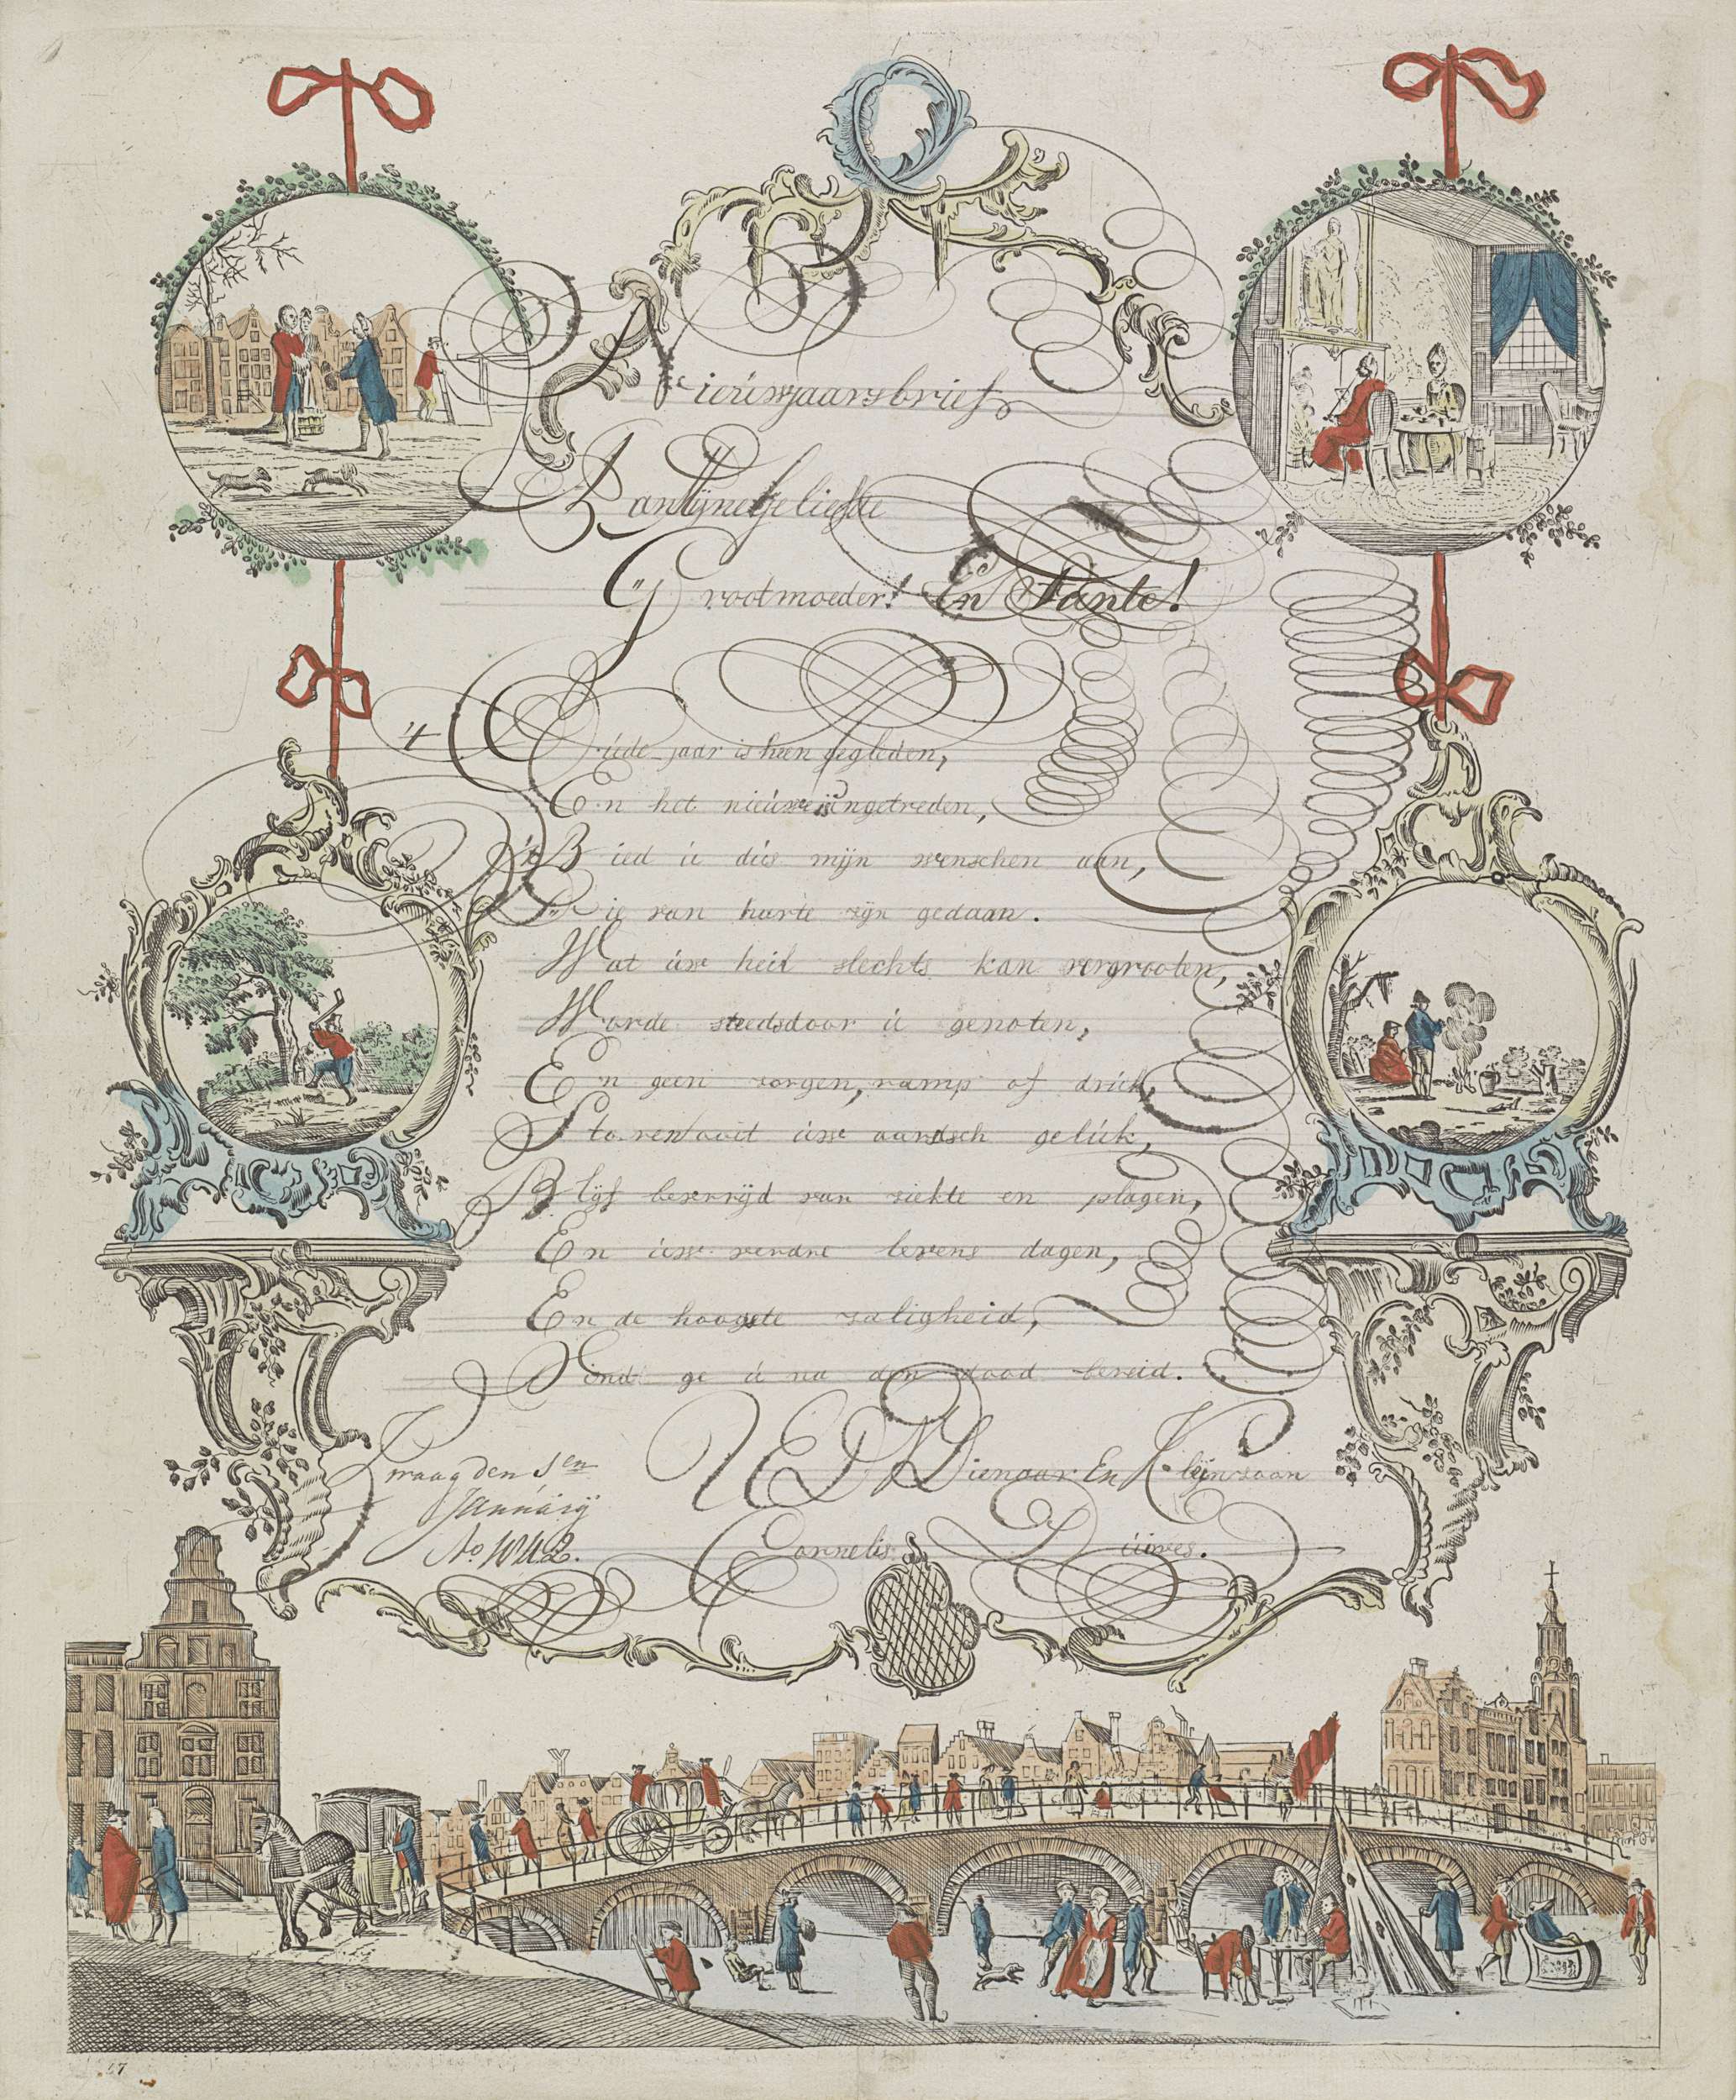 Nieuwjaarsbrief
Aan Mijne Geliefde
Grootmoeder! En Tante!
't Oude jaar is heen gegleden,
En het nieuwe is ingetreden,
'k Bied u dus mijn wenschen aan,
Die van harte zijn gedaan.
Wat uw heil slechts kan vergrooten,
Worde steeds door u genoten,
En geen zorgen, ramp of druk,
Storen ooit uw aardsch geluk,
Blijf bevrijd van ziekte en plagen,
En uw verdre levens dagen,
En de hoogste zaligheid,
Vindt ge u na den dood bereid.
UEDW Dienaar En Kleijnzoon
Cornelis Duives.
Graag den 1en
Januarij
Ao 1842.
17